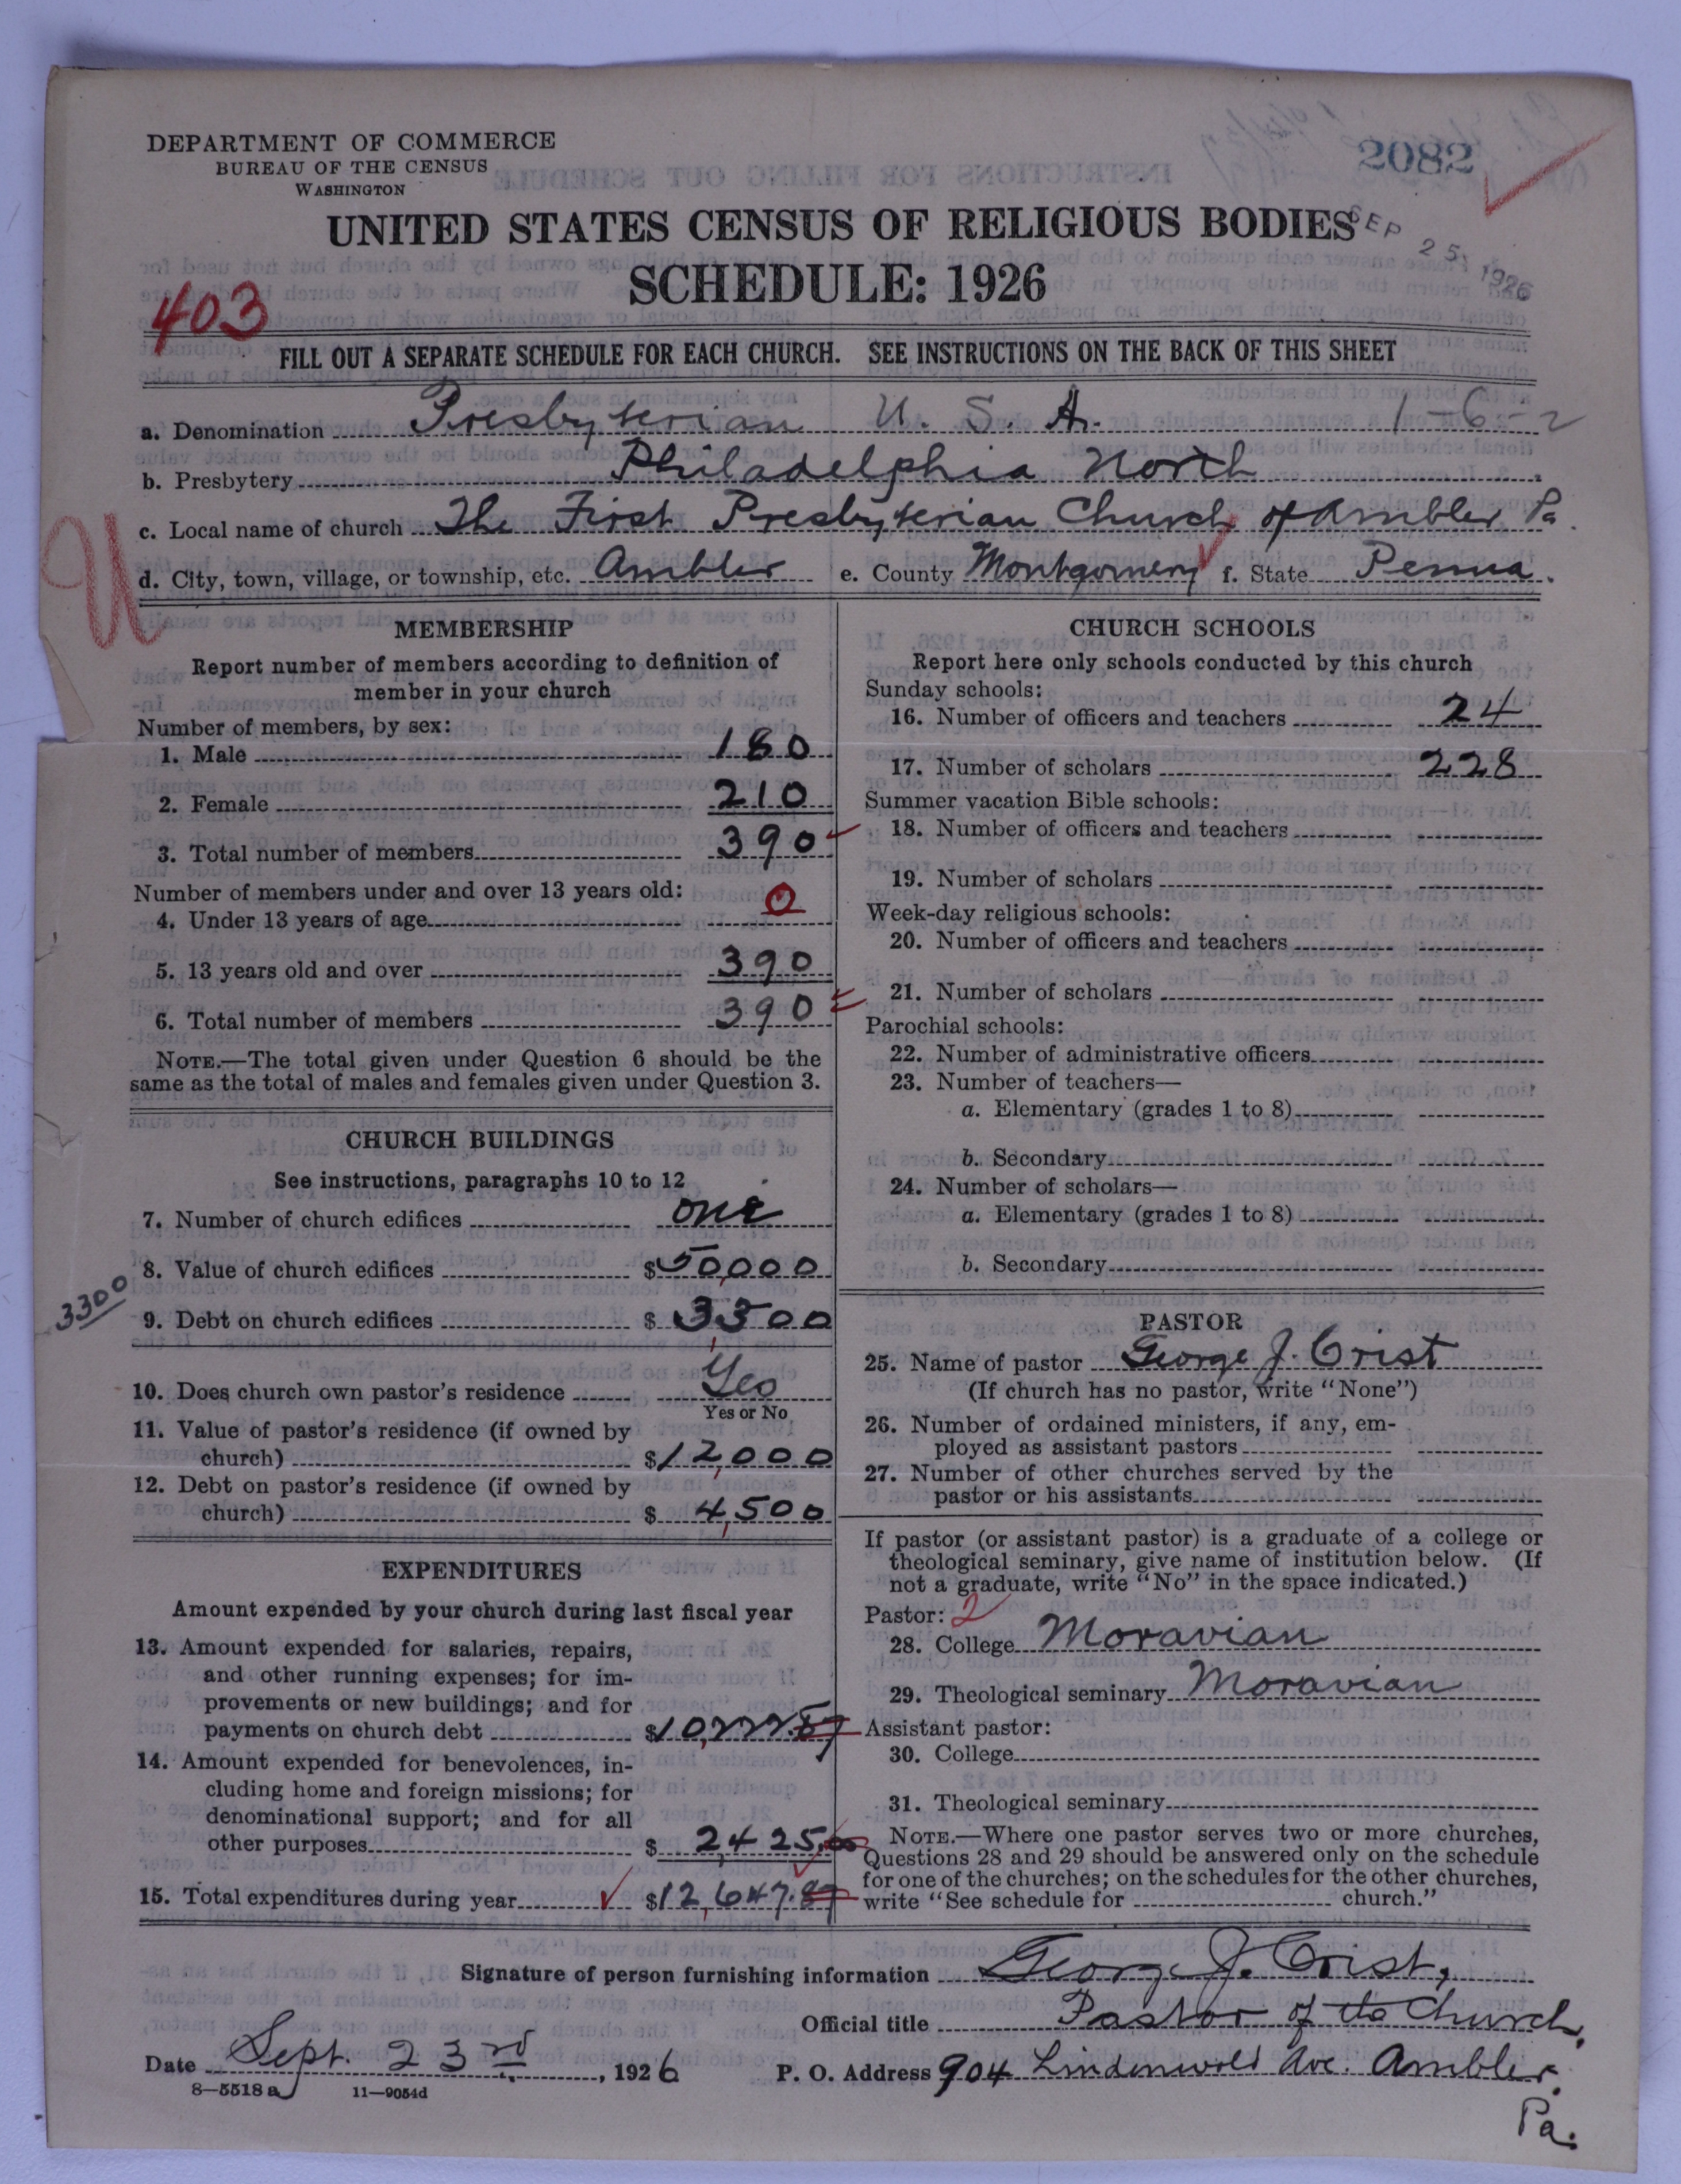 DEPARTMENT OF COMMERCE
BUREAU OF THE CENSUS
WASHINGTON
2082
UNITED STATES CENSUS OF RELIGIOUS BODIES
SEP 25 1926
SCHEDULE: 1926
403
FILL OUT A SEPARATE SCHEDULE FOR EACH CHURCH. SEE INSTRUCTIONS ON THE BACK OF THIS SHEET
a. Denomination Presbyterian U. S. A. 1-6-2
b. Presbytery Philadelphia North
c. Local name of church The First Presbyterian Church of Ambler, Pa.
U
d. City, town, village, or township, etc. Ambler e. County Montgomery f. State Penna.
MEMBERSHIP
Report number of members according to definition of
member in your church
Number of members, by sex:
1. Male 180
2. Female 210
3. Total number of members 390
Number of members under and over 13 years old:
4. Under 13 years of age 0
5. 13 years old and over 390
6. Total number of members 390
NOTE.—The total given under Question 6 should be the
same as the total of males and females given under Question 3.
CHURCH BUILDINGS
See instructions, paragraphs 10 to 12
7. Number of church edifices one
8. Value of church edifices $50,000
3300
9. Debt on church edifices $ 3,300
10. Does church own pastor's residence Yes
Yes or No
11. Value of pastor's residence (if owned by
church) $12,000
12. Debt on pastor's residence (if owned by
church) $ 4,500
EXPENDITURES
Amount expended by your church during last fiscal year
13. Amount expended for salaries, repairs,
and other running expenses; for im-
provements or new buildings; and for
payments on church debt $10,222.87
14. Amount expended for benevolences, in-
cluding home and foreign missions; for
denominational support; and for all
other purposes $ 2,425.00
15. Total expenditures during year $12,647.87
CHURCH SCHOOLS
Report here only schools conducted by this church
Sunday schools:
16. Number of officers and teachers 24
17. Number of scholars 228
Summer vacation Bible schools:
18. Number of officers and teachers
19. Number of scholars
Week-day religious schools:
20. Number of officers and teachers
21. Number of scholars
Parochial schools:
22. Number of administrative officers
23. Number of teachers—
a. Elementary (grades 1 to 8)
b. Secondary
24. Number of scholars—
a. Elementary (grades 1 to 8)
b. Secondary
PASTOR
25. Name of pastor George J. Crist
(If church has no pastor, write "None")
26. Number of ordained ministers, if any, em-
ployed as assistant pastors
27. Number of other churches served by the
pastor or his assistants
If pastor (or assistant pastor) is a graduate of a college or
theological seminary, give name of institution below. (If
not a graduate, write "No" in the space indicated.)
Pastor: 2
28. College Moravian
29. Theological seminary Moravian
Assistant pastor:
30. College
31. Theological seminary
NOTE.—Where one pastor serves two or more churches,
Questions 28 and 29 should be answered only on the schedule
for one of the churches; on the schedules for the other churches,
write "See schedule for church."
Signature of person furnishing information George J. Crist,
Official title Pastor of the Church.
Date Sept. 23rd, 1926 P. O. Address 904 Lindenwold Ave. Ambler,
Pa.
8—5518a 11—9054d